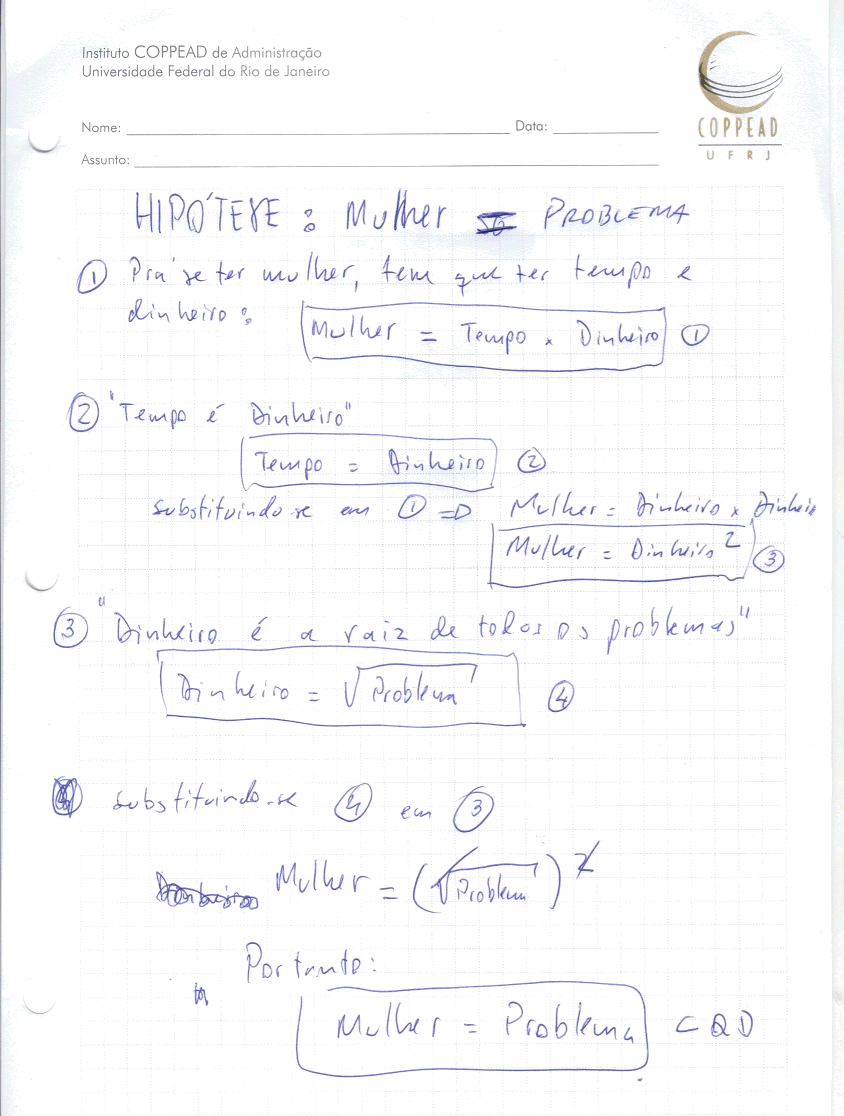 Instituto COPPEAD de Administração
Universidade Federal do Rio de Janeiro
COPPEAD
UFRJ
Nome: Data:
Assunto:
HIPÓTESE : Mulher = PROBLEMA
① Prá se ter mulher, tem que ter tempo e
dinheiro:
Mulher = Tempo x Dinheiro ①
② "Tempo é Dinheiro"
Tempo = Dinheiro ②
Substituindo-se em ① => Mulher = Dinheiro x Dinheiro
Mulher = Dinheiro² ③
③ "Dinheiro é a raiz de todos os problemas"
Dinheiro = √Problema ④
Substituindo-se ④ em ③
Mulher = (√Problema)²
Portanto:
Mulher = Problema CQD